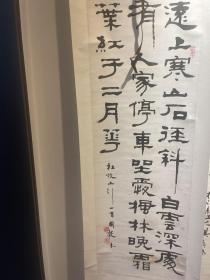 遠上寒山石徑斜白雲深處
有人家停車坐愛楓林晚霜
葉紅于二月花
杜牧山行一首